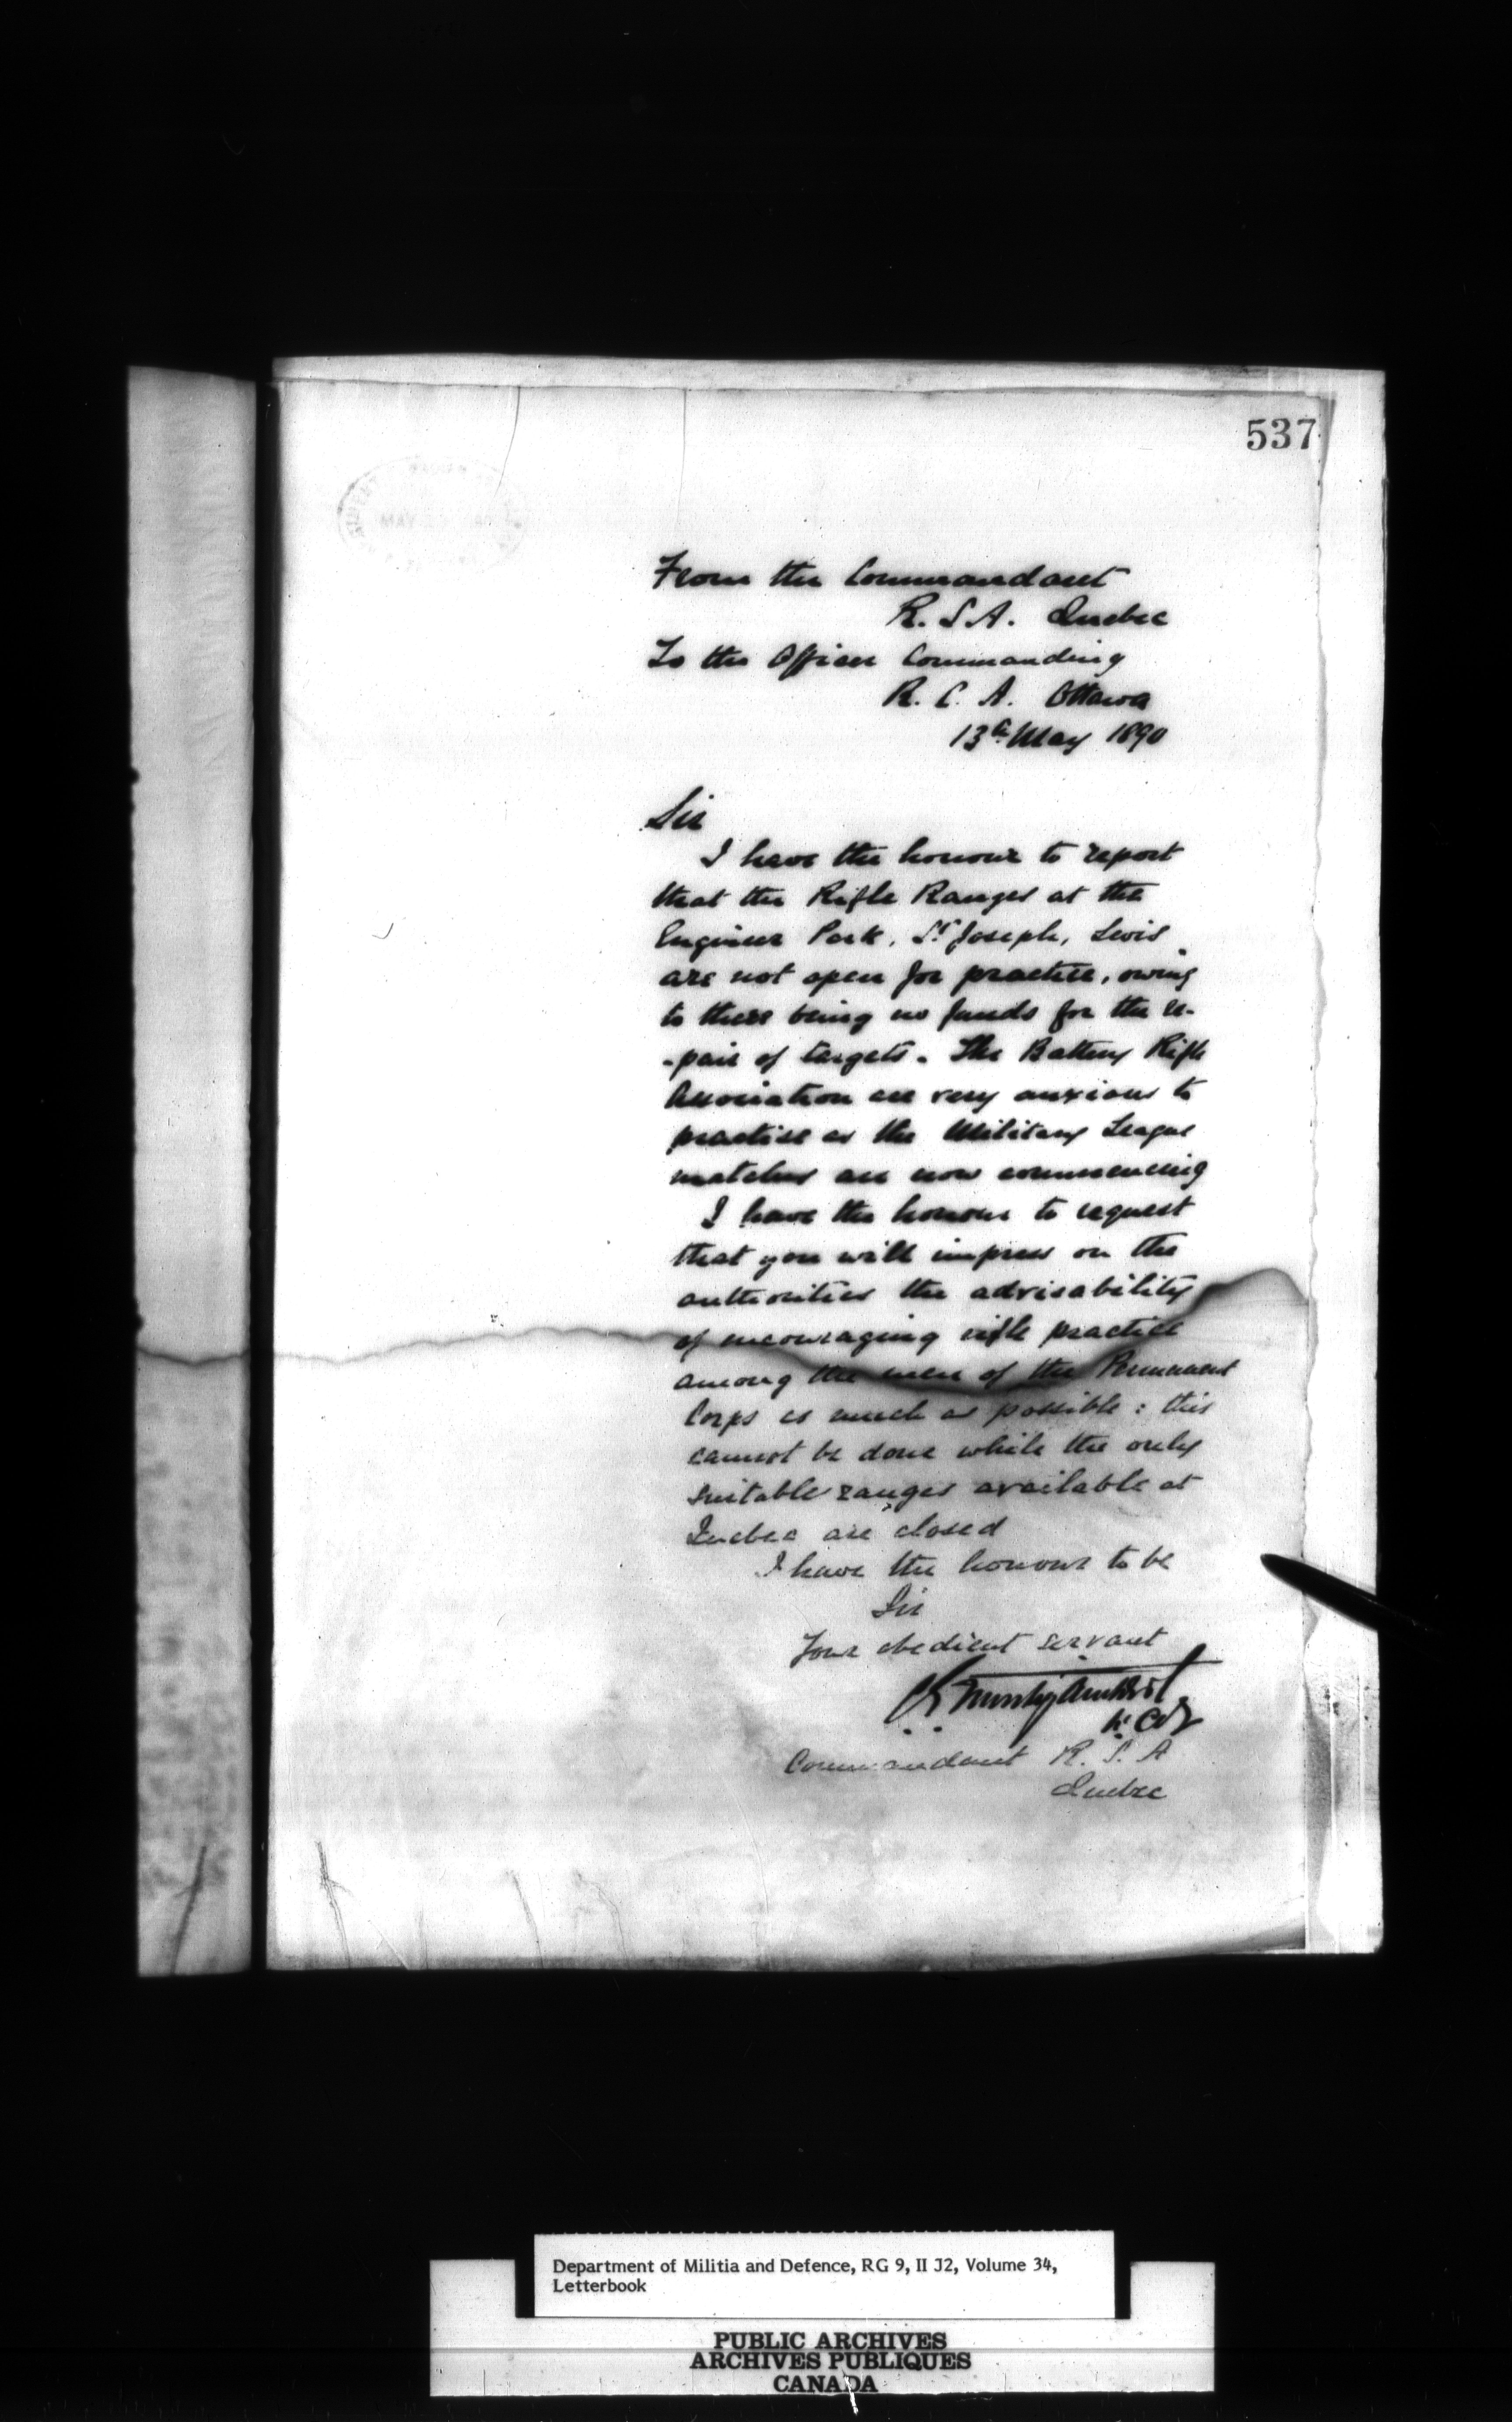 537
MAY
From the Commandant
R. S. A. Quebec
To the Officer Commanding
R. C. A. Ottawa
13th May 1890
Sir
I have the honour to report
that the Rifle Ranges at the
Engineer Park, St Joseph, Levis
are not open for practice, owing
to there being no funds for the re-
-pair of targets. The Battery Rifle
Association are very anxious to
practise as the Military League
matches are now commencing
I have the honour to request
that you will impress on the
authorities the advisability
of encouraging rifle practice
among the men of the Permanent
Corps as much as possible: this
cannot be done while the only
suitable ranges available at
Quebec are closed
I have the honour to be
Sir
Your obedient servant
Commandant R. S. A
Quebec
Department of Militia and Defence, RG 9, II J2, Volume 34,
Letterbook
PUBLIC ARCHIVES
ARCHIVES PUBLIQUES
CANADA